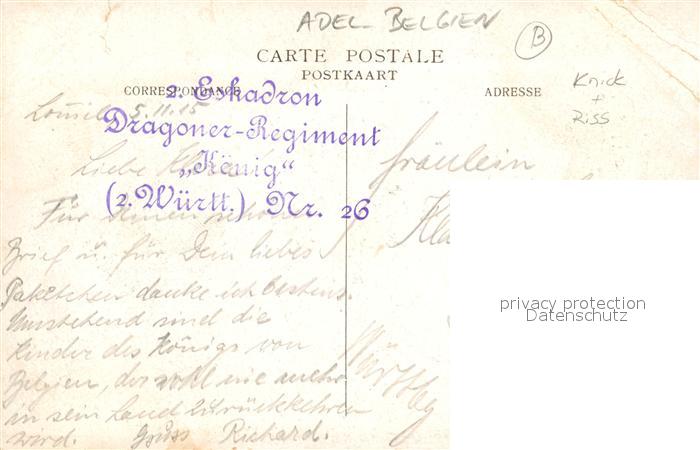 ADEL BELGIEN
B
CARTE POSTALE
POSTKAART
CORRESPONDANCE
ADRESSE
Knick
+
Riss
2. Eskadron
Dragoner-Regiment
„König“
(2. Württ.) Nr. 26
5.11.15
Liebe
Für Deinen schönen
Brief u. für Dein liebes
Paketchen danke ich bestens.
Umstehend sind die
Kinder des Königs von
Belgien, der wohl nie mehr
in sein Land zurückkehren
wird. Gruss Richard.
Fräulein
privacy protection
Datenschutz